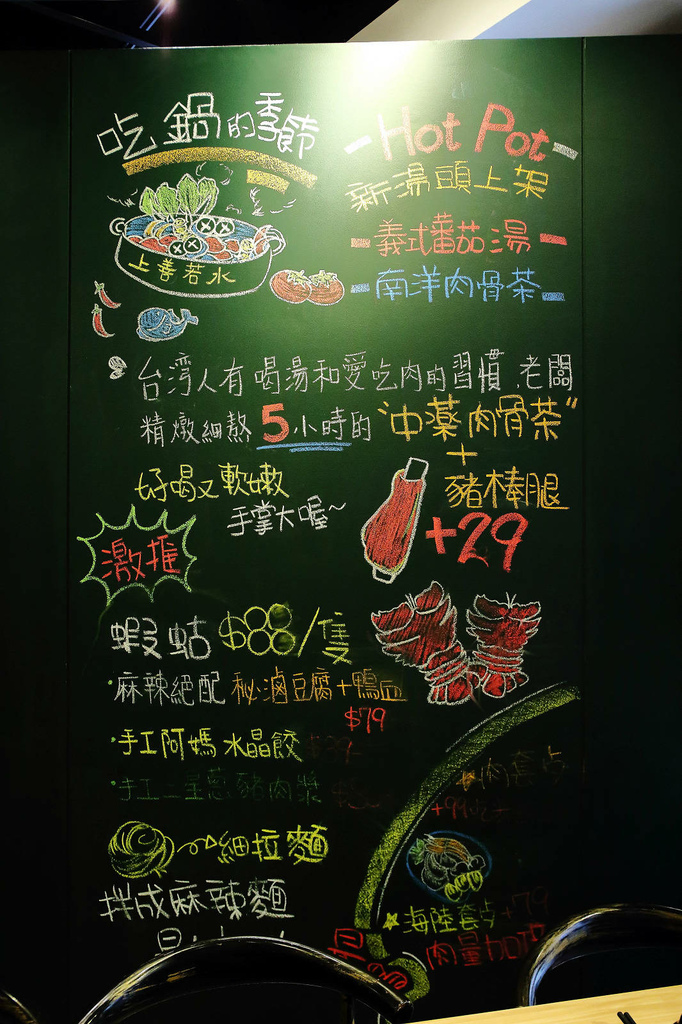 吃鍋的季節
-Hot Pot-
新湯頭上架
義式蕃茄湯
南洋肉骨茶
上善若水
台湾人有喝湯和愛吃肉的習慣.老闆
精燉細熬5小時的"中藥肉骨茶"
+
豬棒腿
+29
好喝又軟嫩
手掌大喔~
激推
蝦蛄 $88/隻
·麻辣絕配 秘滷豆腐+鴨血
$79
·手工阿媽水晶餃 $39
·手工三星蔥豬肉漿
肉套点
細拉麵
拌成麻辣麵
海陸套点+79
肉量加倍